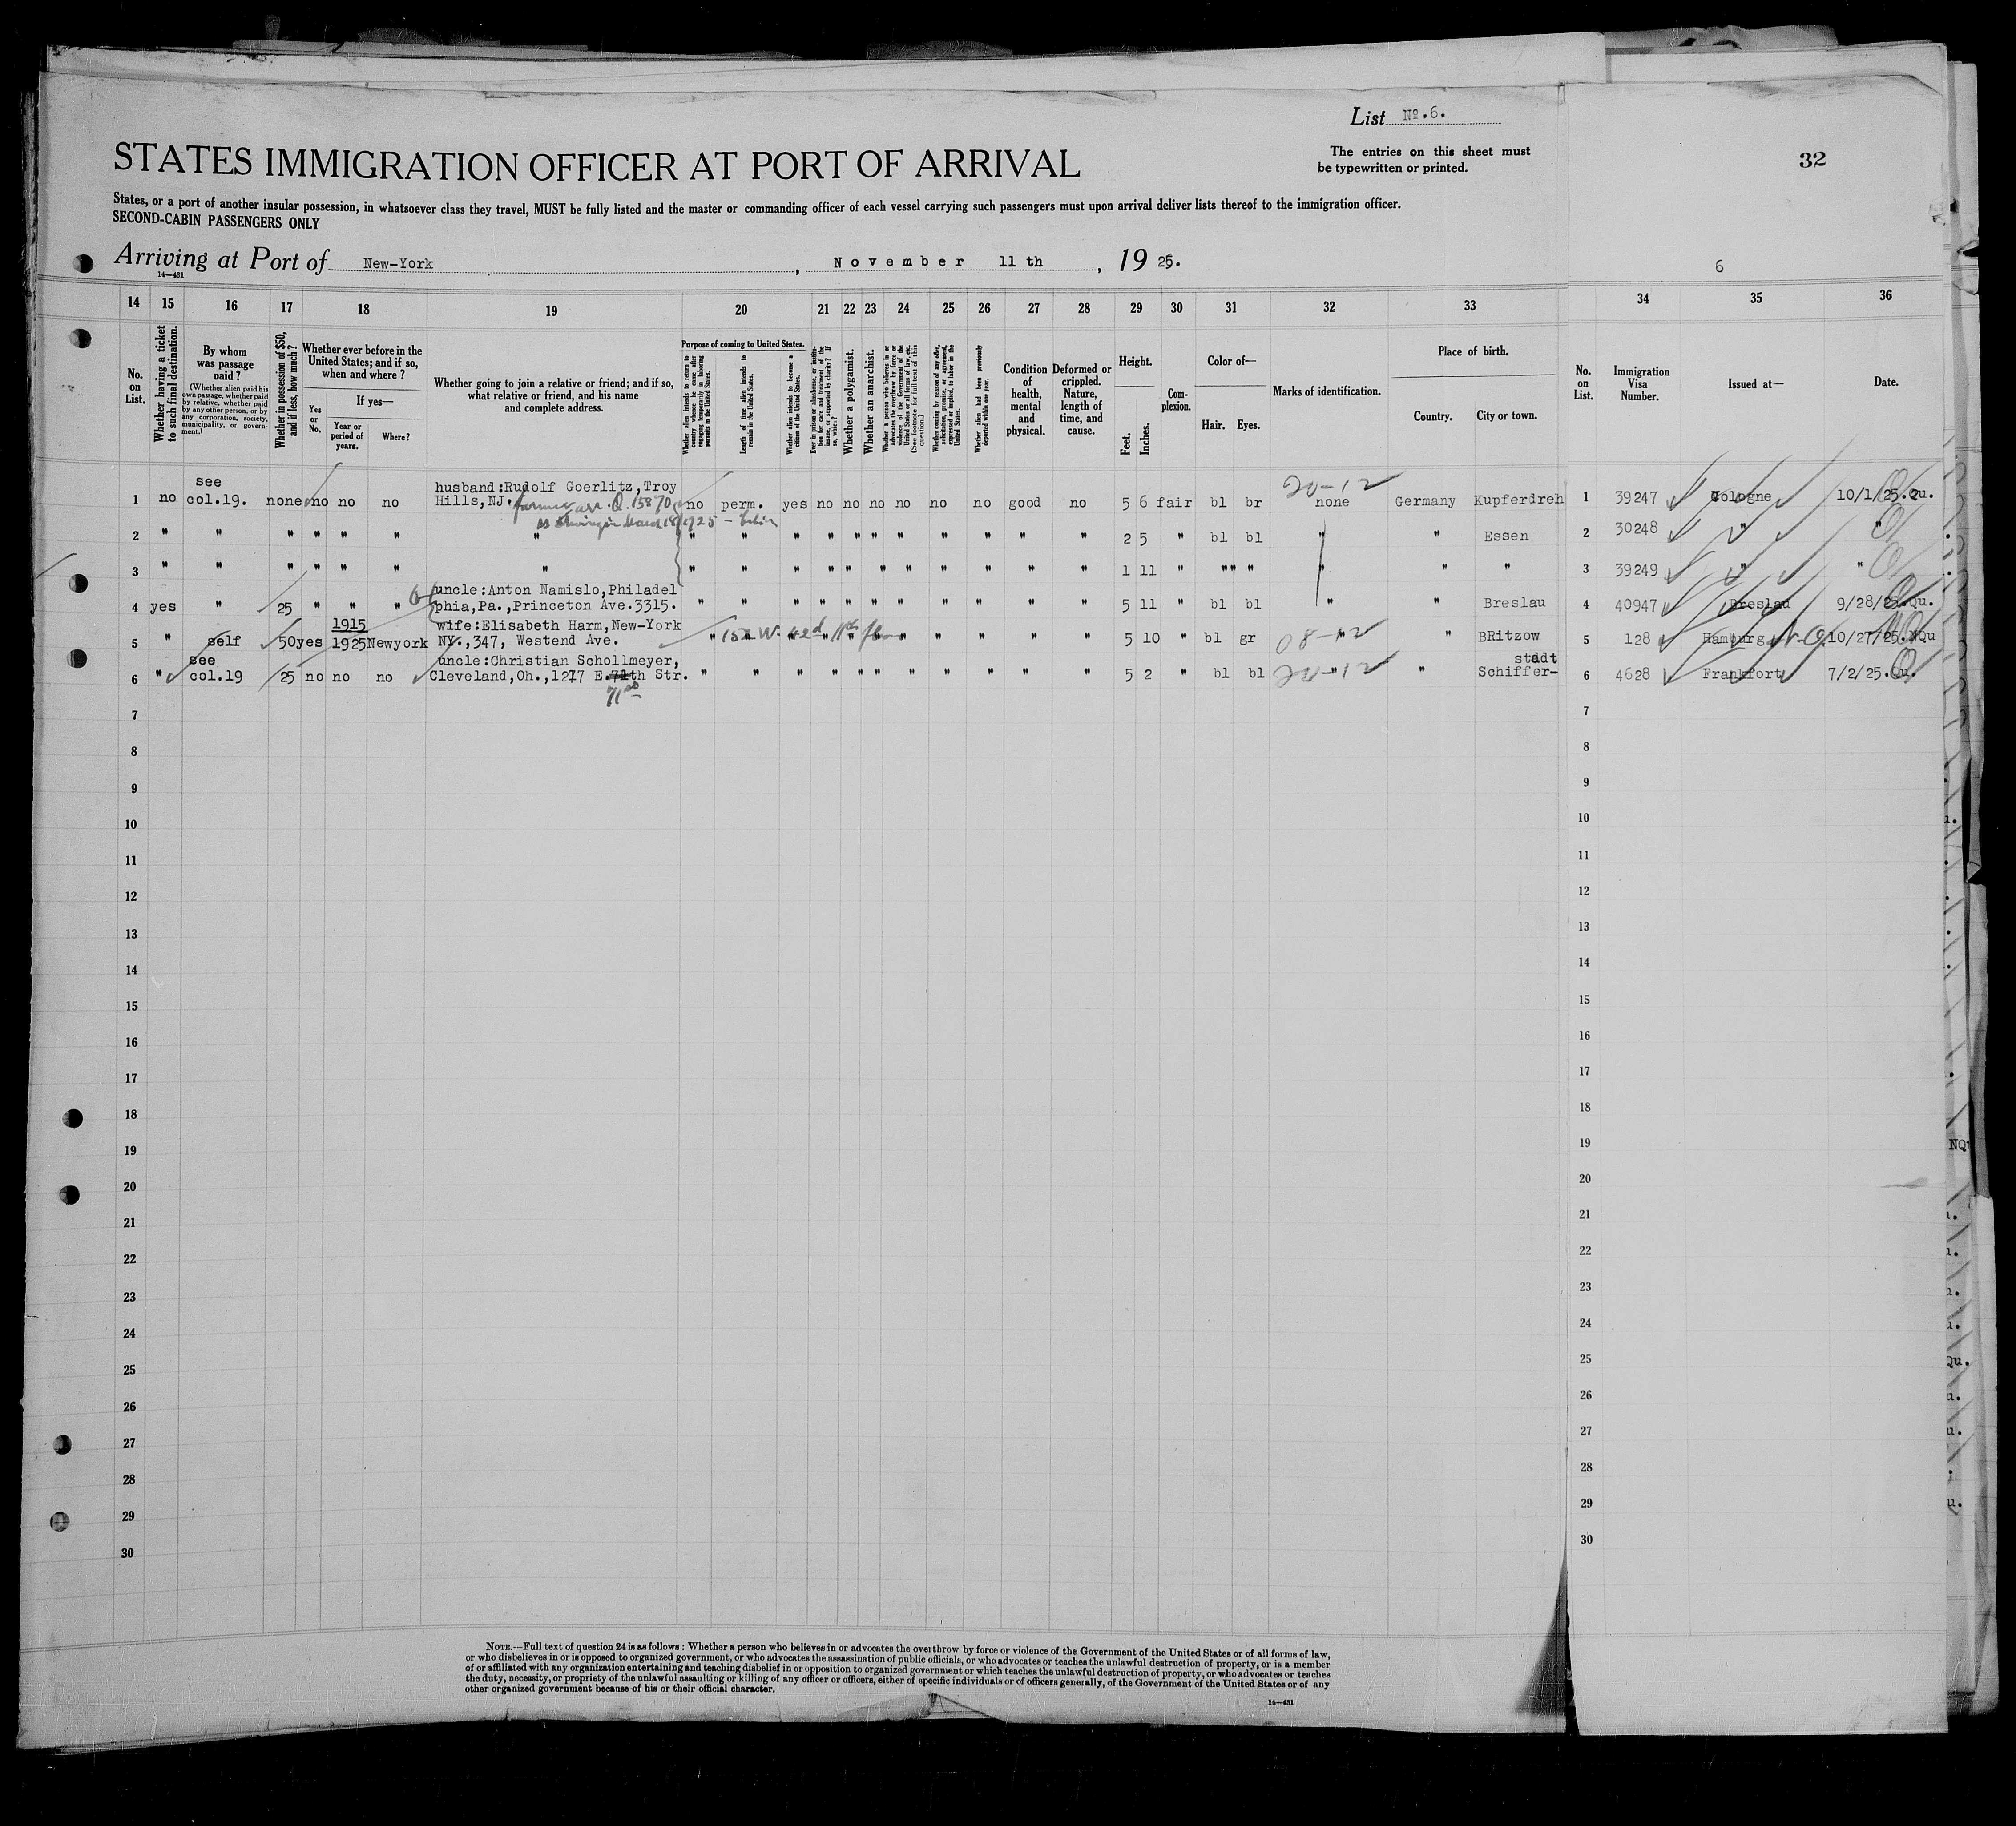 List No. 6.
STATES IMMIGRATION OFFICER AT PORT OF ARRIVAL
The entries on this sheet must
be typewritten or printed.
32
States, or a port of another insular possession, in whatsoever class they travel, MUST be fully listed and the master or commanding officer of each vessel carrying such passengers must upon arrival deliver lists thereof to the immigration officer.
SECOND-CABIN PASSENGERS ONLY
Arriving at Port of New-York, November 11 th, 19 25.
14—431
6
14 15 16 17 18 19 20 21 22 23 24 25 26 27 28 29 30 31 32 33 34 35 36
No. on List.
Whether having a ticket to such final destination.
By whom was passage paid?
(Whether alien paid his own passage, whether paid by relative, whether paid by any other person, or by any corporation, society, municipality, or government.)
Whether in possession of $50, and if less, how much?
Whether ever before in the United States; and if so, when and where?
Yes or No.
If yes—
Year or period of years.
Where?
Whether going to join a relative or friend; and if so, what relative or friend, and his name and complete address.
Purpose of coming to United States.
Whether alien intends to return to country whence he came after engaging temporarily in laboring pursuits in the United States.
Length of time alien intends to remain in the United States.
Whether alien intends to become a citizen of the United States.
Ever in prison or almshouse, or institution for care and treatment of the insane, or supported by charity? If so, which?
Whether a polygamist.
Whether an anarchist.
Whether a person who believes in or advocates the overthrow by force or violence of the Government of the United States or all forms of law, etc. (See footnote for full text of this question.)
Whether coming by reason of any offer, solicitation, promise, or agreement, expressed or implied, to labor in the United States.
Whether alien had been previously deported within one year.
Condition of health, mental and physical.
Deformed or crippled. Nature, length of time, and cause.
Height.
Feet. Inches.
Complexion.
Color of—
Hair. Eyes.
Marks of identification.
Place of birth.
Country. City or town.
No. on List.
Immigration Visa Number.
Issued at—
Date.
20-12
see husband:Rudolf Goerlitz,Troy
1 no col.19. none no no no Hills,NJ. former arr. Q. 15870 no perm. yes no no no no no no good no 5 6 fair bl br none Germany Kupferdreh 1 39247 Cologne 10/1/25.Qu.
1925
2 " " " " " " " " " " " " " " " " " " " 2 5 " bl bl " " Essen 2 30248 " "
3 " " " " " " " " " " " " " " " " " " " 1 11 " " " " " " " 3 39249 " "
uncle:Anton Namislo,Philadel
4 yes " 25 " " " phia,Pa.,Princeton Ave.3315. " " " " " " " " " " " 5 11 " bl bl " " Breslau 4 40947 Breslau 9/28/25.Qu.
1915 wife:Elisabeth Harm,New-York
5 " self 50 yes 1925 Newyork NY.,347, Westend Ave. " 152 W. 42d 11th floor " " " " " 5 10 " bl gr 08-12 " BRitzow 5 128 Hamburg N.Q. 10/27/25.NQu
see uncle:Christian Schollmeyer, stadt
6 " col.19 25 no no no Cleveland,Oh.,1217 E.71th Str. " " " " " " " " " " " 5 2 " bl bl " " Schiffer- 6 4628 Frankfort 7/2/25.Qu.
71st
7 7
8 8
9 9
10 10
11 11
12 12
13 13
14 14
15 15
16 16
17 17
18 18
19 19
20 20
21 21
22 22
23 23
24 24
25 25
26 26
27 27
28 28
29 29
30 30
NOTE.—Full text of question 24 is as follows: Whether a person who believes in or advocates the overthrow by force or violence of the Government of the United States or of all forms of law,
or who disbelieves in or is opposed to organized government, or who advocates the assassination of public officials, or who advocates or teaches the unlawful destruction of property, or is a member
of or affiliated with any organization entertaining and teaching disbelief in or opposition to organized government or which teaches the unlawful destruction of property, or who advocates or teaches
the duty, necessity, or propriety of the unlawful assaulting or killing of any officer or officers, either of specific individuals or of officers generally, of the Government of the United States or of any
other organized government because of his or their official character.
14—431